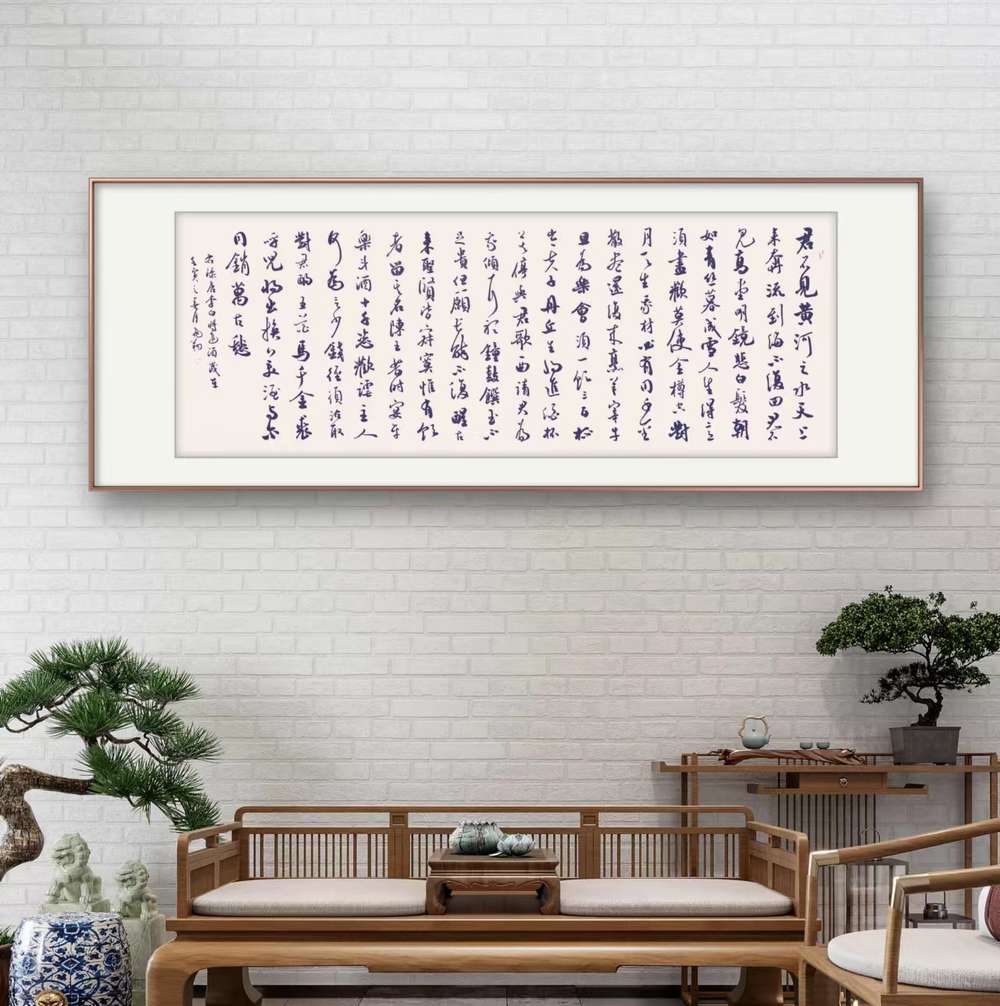 君不見黃河之水天上
来奔流到海不復回君不
見高堂明鏡悲白髮朝
如青丝暮成雪人生得意
須盡歡莫使金樽空對
月天生我材必有用千金
散盡還復來烹羊宰牛
且為樂會須一飲三百杯
岑夫子丹丘生將進酒杯
莫停與君歌一曲請君為
我傾耳聽鐘鼓饌玉不
足貴但願長醉不復醒古
来聖賢皆寂寞惟有飲
者留其名陳王昔時宴平
樂斗酒十千恣歡謔主人
何為言少錢徑須沽取
對君酌五花馬千金裘
呼兒將出換美酒與爾
同銷萬古愁
唐李白將進酒歲在